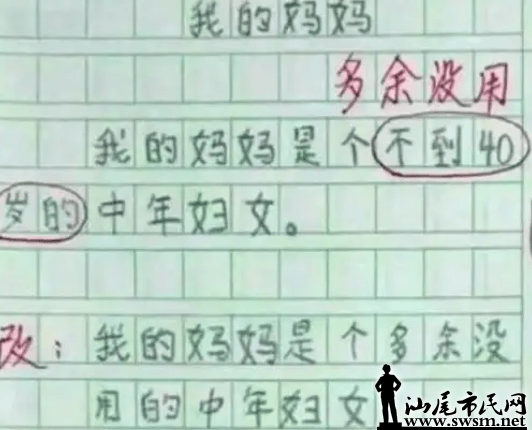 我的妈妈
多余没用
我的妈妈是个不到40
岁的中年妇女。
改：我的妈妈是个多余没
用的中年妇女
汕尾市民网
www.swsm.net